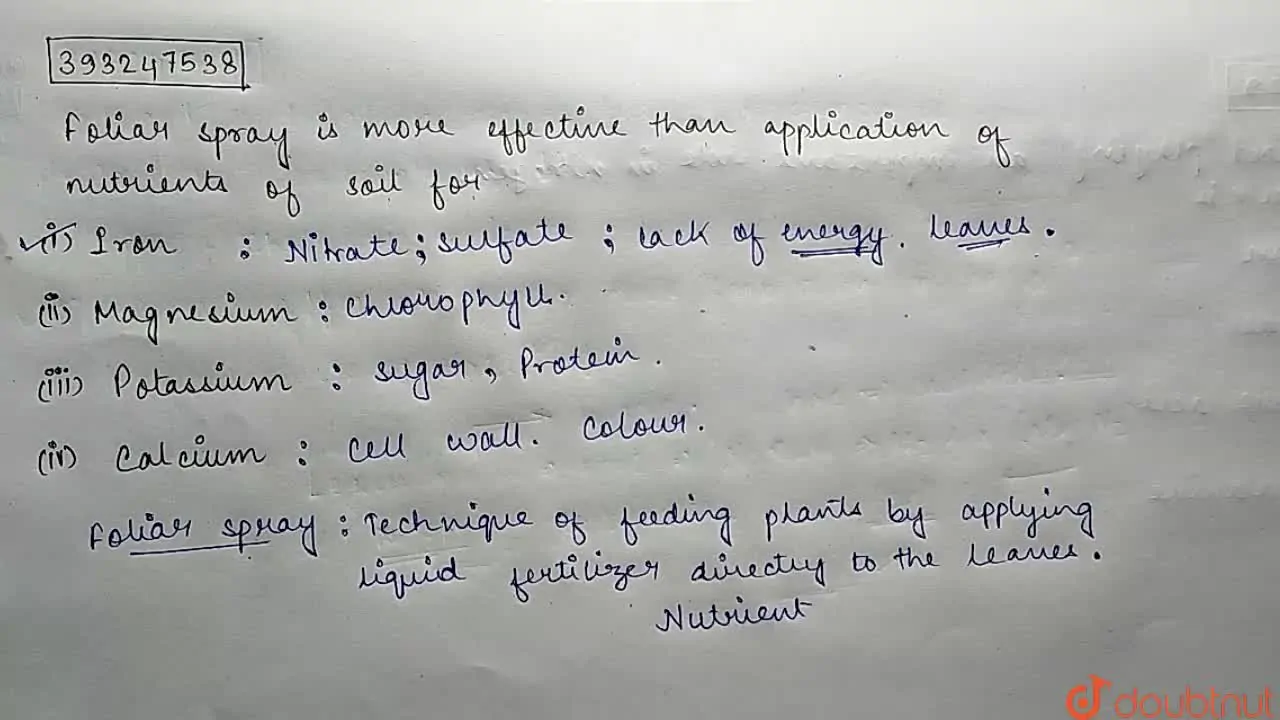 393247538
Foliar spray is more effective than application of
nutrients of soil for
(i) Iron : Nitrate; sulfate ; lack of energy. leaves.
(ii) Magnesium : chlorophyll.
(iii) Potassium : sugar, Protein.
(iv) Calcium : cell wall. colour.
Foliar spray : Technique of feeding plants by applying
liquid fertilizer directly to the leaves.
Nutrient
doubtnut